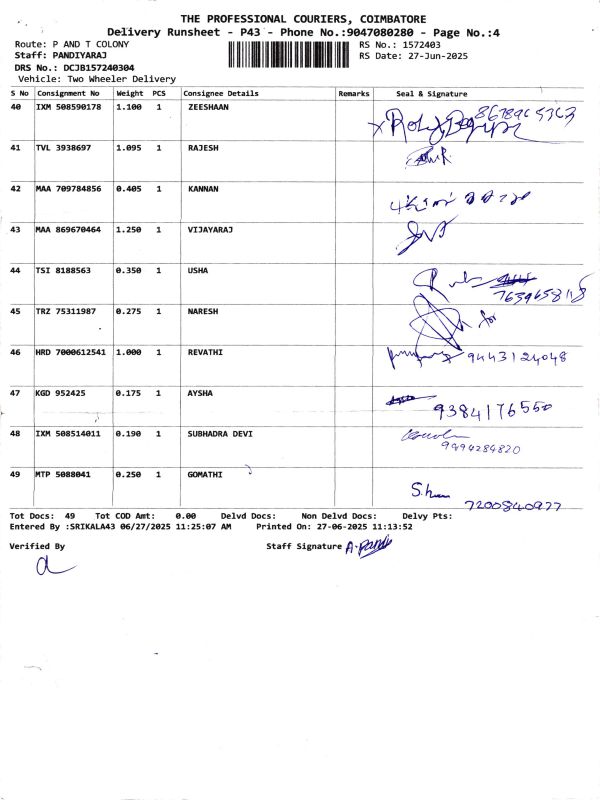 THE PROFESSIONAL COURIERS, COIMBATORE
Delivery Runsheet - P43 - Phone No.:9047080280 - Page No.:4
Route: P AND T COLONY
RS No.: 1572403
Staff: PANDIYARAJ
RS Date: 27-Jun-2025
DRS No.: DCJB157240304
Vehicle: Two Wheeler Delivery
S No Consignment No Weight PCS Consignee Details Remarks Seal & Signature
40 IXM 508590178 1.100 1 ZEESHAAN
41 TVL 3938697 1.095 1 RAJESH
42 MAA 709784856 0.405 1 KANNAN
43 MAA 869670464 1.250 1 VIJAYARAJ
44 TSI 8188563 0.350 1 USHA
45 TRZ 75311987 0.275 1 NARESH
46 HRD 7000612541 1.000 1 REVATHI 9443124048
47 KGD 952425 0.175 1 AYSHA 9384176550
48 IXM 508514011 0.190 1 SUBHADRA DEVI 9494284820
49 MTP 5088041 0.250 1 GOMATHI
7200840977
Tot Docs: 49 Tot COD Amt: 0.00 Delvd Docs: Non Delvd Docs: Delvy Pts:
Entered By :SRIKALA43 06/27/2025 11:25:07 AM Printed On: 27-06-2025 11:13:52
Verified By Staff Signature